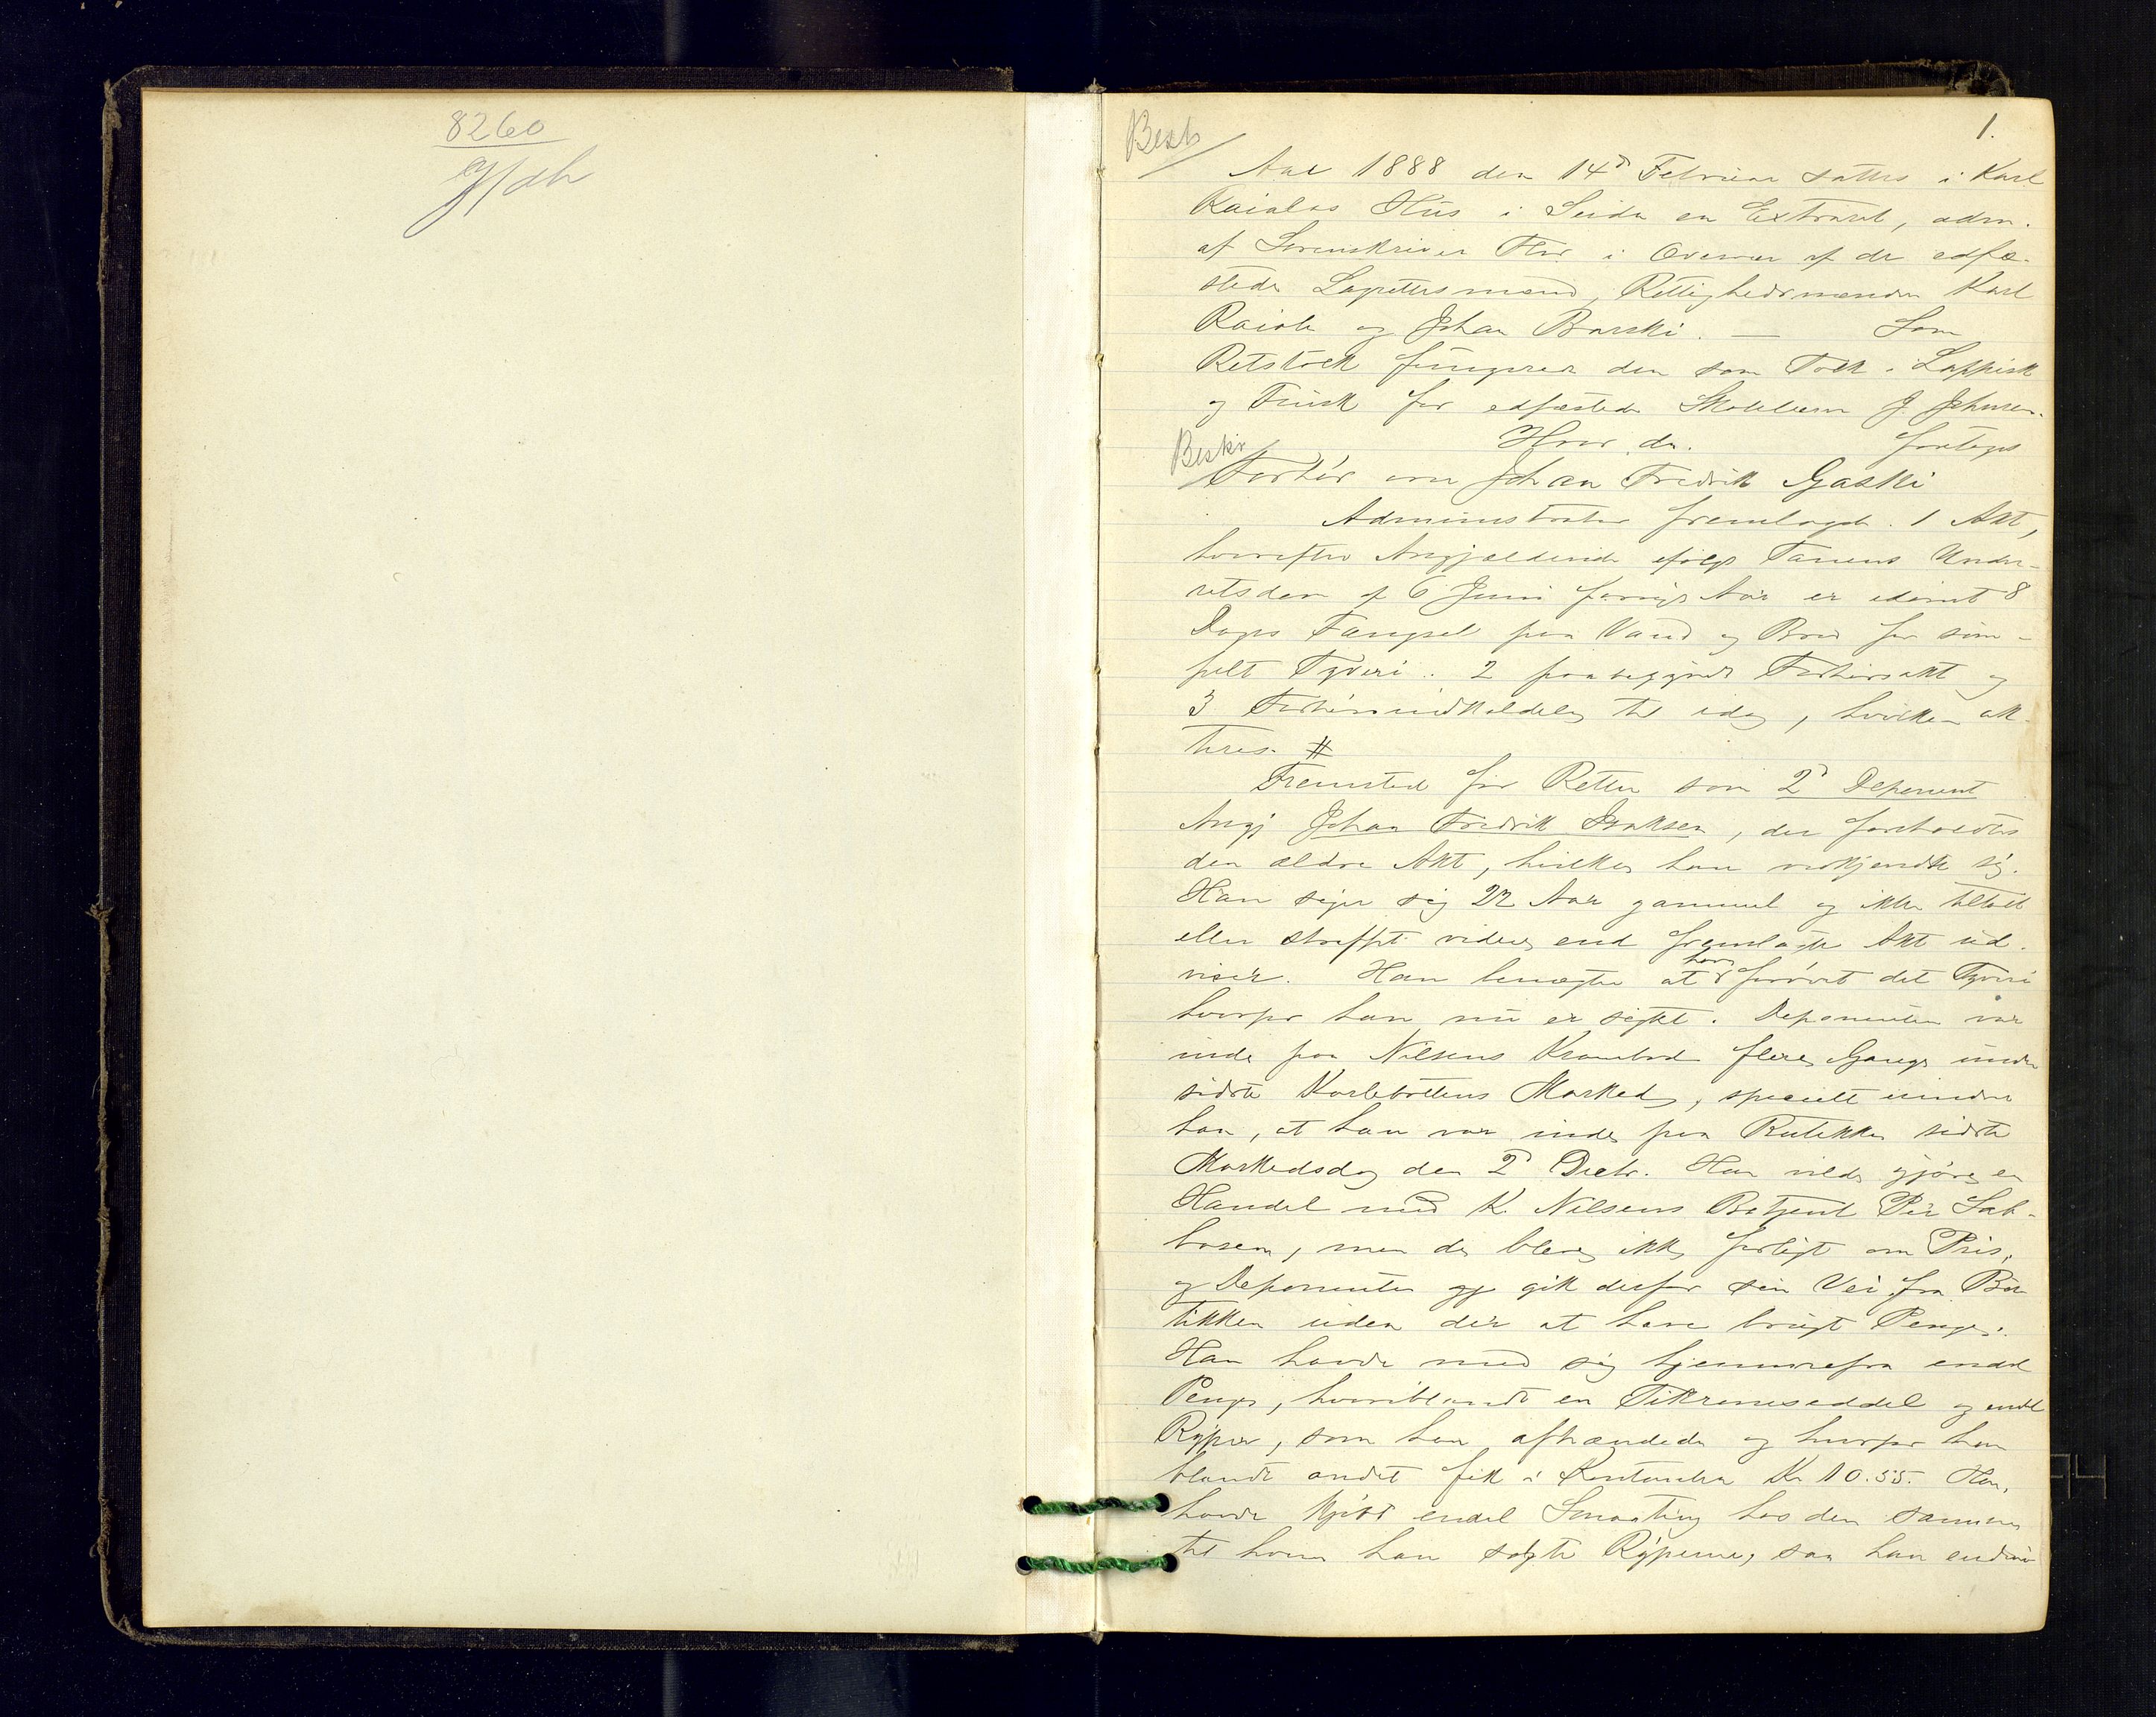 8260
1.
Aar 1888 den 14d Februar sattes i Karl
Raialas Hus i Seida en Extraret, adm.
af Sorenskriver Flor i Overvær af de edfæ-
stede Lagrettesmænd, Rettighedsmændene Karl
Raiala og Johan Barski. — Som
Retstolk fungerer den som Tolk i Lappisk
og Finsk før edfæstede Skolelærer J. Johnsen.
Hvor da. foretoges
Beskr
Forhør over Johan Fredrik Gaski
Administrator fremlagde 1 Akt,
hvorefter Angjældende ifølge Tanens Under-
retsdom af 6 Juni forrige Aar er idømt 8
Dages Fængsel paa Vand og Brød for sim-
pelt Tyveri. 2 paabegyndt Forhørsakt og
3 Forhørsindkaldelse til idag, hvilken ak-
teres. #
Fremstod for Retten som 2d Deponent
Angj Johan Fredrik Isaksen, der foreholdtes
den ældre Akt, hvilken han vedkjendte sig.
Han siger sig 22 Aar gammel og ikke tiltalt
eller straffet videre end fremlagte Akt ud-
viser. Han benægter at have forøvet det Tyveri
hvorfor han nu er sigtet. Deponenten var
inde paa Nilsens Krambod flere Gange under
sidste Karlebottens Marked, specielt minder
han, at han var inde paa Butikken sidste
Markedsdag den 2d Decbr. Han vilde gjøre en
Handel med K. Nilsens Betjent Per Lab-
basen, men de bleve ikke forligt om Pris,
og Deponenten gik derfor sin Vei fra Bu-
tikken uden der at have brugt Penge.
Han havde med sig hjemmefra endel
Penge, hvoriblandt en Tikroneseddel og endel
Ryper, som han afhændede og hvorfor han
blandt andet fik i Kontanter Kr 10.55. Han
havde kjøbt endel Smaating hos den samme
til hvem han solgte Ryperne, saa han endnu